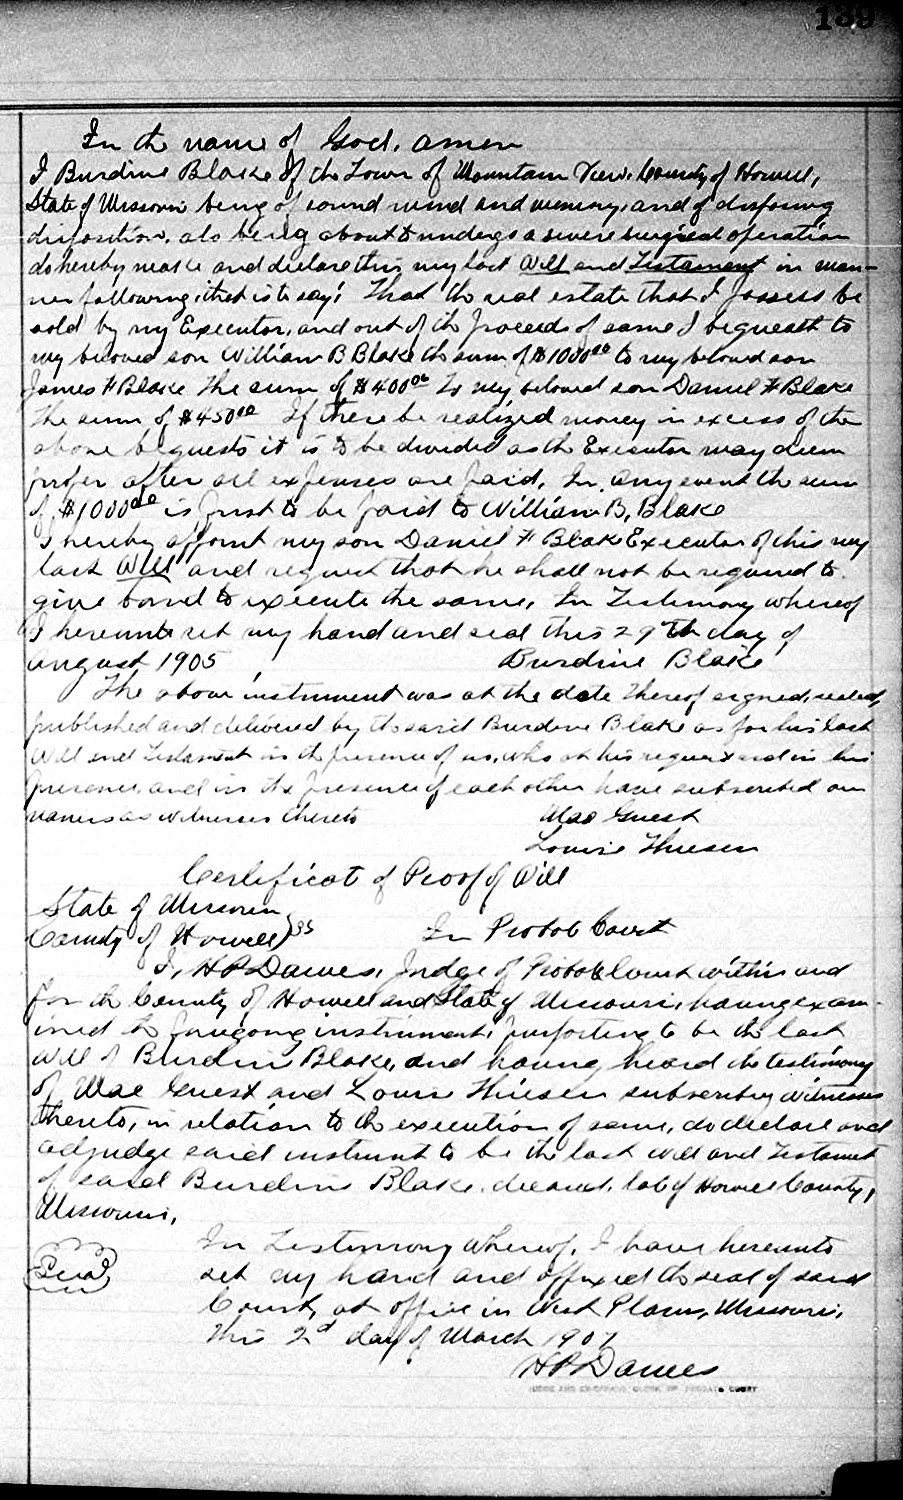 139
In the name of God, amen
I Burdine Blake Of the Town of Mountain View, County of Howell,
State of Missouri being of sound mind and memory, and of disposing
disposition, als being about to undergo a severe surgical operation
do hereby make and declare this my last Will and Testament in man-
ner following, that is to say: That the real estate that I possess be
sold by my Executor, and out of the proceeds of same I bequeath to
my beloved son William B Blake the sum of $1000 00 to my beloved son
James F Blake the sum of $400 00 To my beloved son Daniel F Blake
the sum of $450 00 If there be realized money in excess of the
above bequests it is to be divided as the Executor may deem
proper after all expenses are paid, In any event the sum
of $1000 00 is first to be paid to William B, Blake
I hereby appoint my son Daniel F Blake Executor of this my
last Will and request that he shall not be required to
give bond to execute the same, In Testimony whereof
I hereunto set my hand and seal this 29th day of
August 1905 Burdine Blake
The above instrument was at the date thereof signed, sealed,
published and delivered by the said Burdine Blake as for his last
Will and Testament in the presence of us, who at his request and in his
presence, and in the presence of each other have subscribed our
names as witnesses thereto Mae Guest
Louise Thiesen
Certificat of Proof of Will
State of Missouri
County of Howell } ss In Probate Court
I, H P Dawes, Judge of Probate Court within and
for the County of Howell and State of Missouri, having exam-
ined the foregoing instrument, purporting to be the last
Will of Burdine Blake, and having heard the testimony
of Mae Guest and Louise Thiesen subscribing witnesses
thereto, in relation to the execution of same, do declare and
adjudge said instrumt to be the last will and Testament
of said Burdine Blake, deceased, late of Howell County,
Missouri,
In Testimony whereof, I have hereunto
Seal set my hand and affixed the seal of said
Court, at office in West Plains, Missouri,
this 2d day of March 1907
H P Dawes
JUDGE AND EX-OFFICIO CLERK OF PROBATE COURT